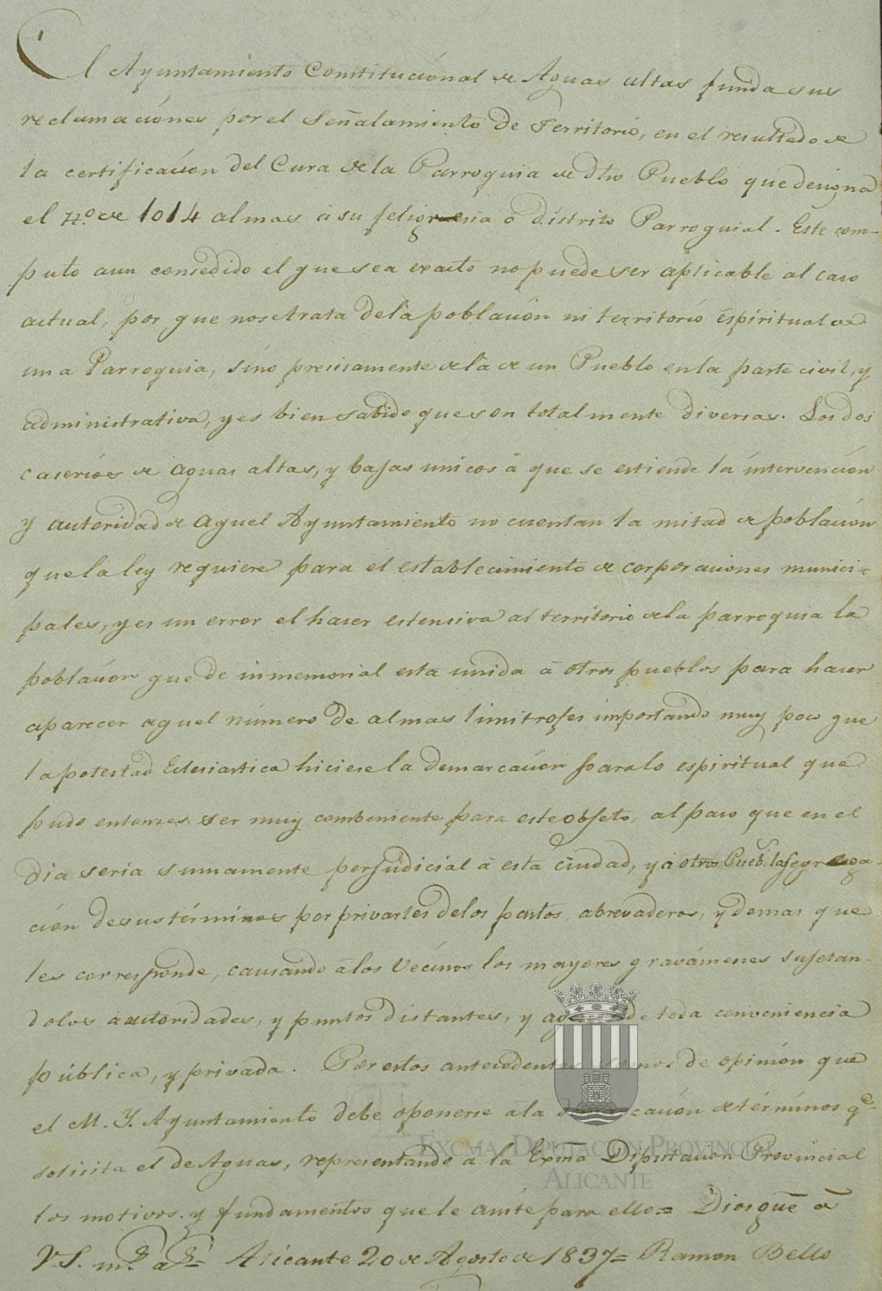 El Ayuntamiento Constituciónal de Aguas altas funda sus
reclamaciónes por el Señalamiento de Territorio, en el resultado de
la certificacion del Cura de la Parroquia de dho Pueblo que designa
el n.º de 1014 almas á su feligresia o distrito Parroquial. Este com-
puto aun consedido el que sea exacto no puede ser aplicable al caso
actual, por que no se trata de la poblaciòn ni territorio espiritual de
una Parroquia, sino precisamente de la de un Pueblo en la parte civil, y
administrativa, y es bien sabido que son totalmente diversas. Los dos
caserios de aguas altas, y bajas unicos á que se estiende la intervención
y autoridad de aquel Ayuntamiento no cuentan la mitad de poblaciòn
que la ley requiere para el establecimiento de corporaciones munici-
pales, y es un error el hacer estensiva al territorio de la parroquia la
poblacion que de inmemorial esta unida á otros pueblos para hacer
aparecer aquel número de almas limitrofes importando muy poco que
la potestad Eclesiastica hiciese la demarcacion para lo espiritual que
pudo entonzes ser muy combeniente para este objeto, al paso que en el
dia seria sumamente perjudicial á esta ciudad, y á otros Pueb.s la segrega-
ción de sus términos por privarles de los pastos, abrevaderos, y demas que
les corresponde, causando á los Vecinos los mayores gravámenes sujetan-
dolos á autoridades, y puntos distantes, y de toda conveniencia
pública, y privada. Por estos antecedentes somos de opinión que
el M. Y. Ayuntamiento debe oponerse á la de términos q.e
solicita el de Aguas, representando á la Exma Diputacion Provincial
los motivos y fundamentos que le para ello = Dios gue á
V.S. m.s a.s = Alicante 20 de Agosto de 1837 = Ramon Bello
EXCMA. DIPUTACIÓN PROVINCIAL
ALICANTE